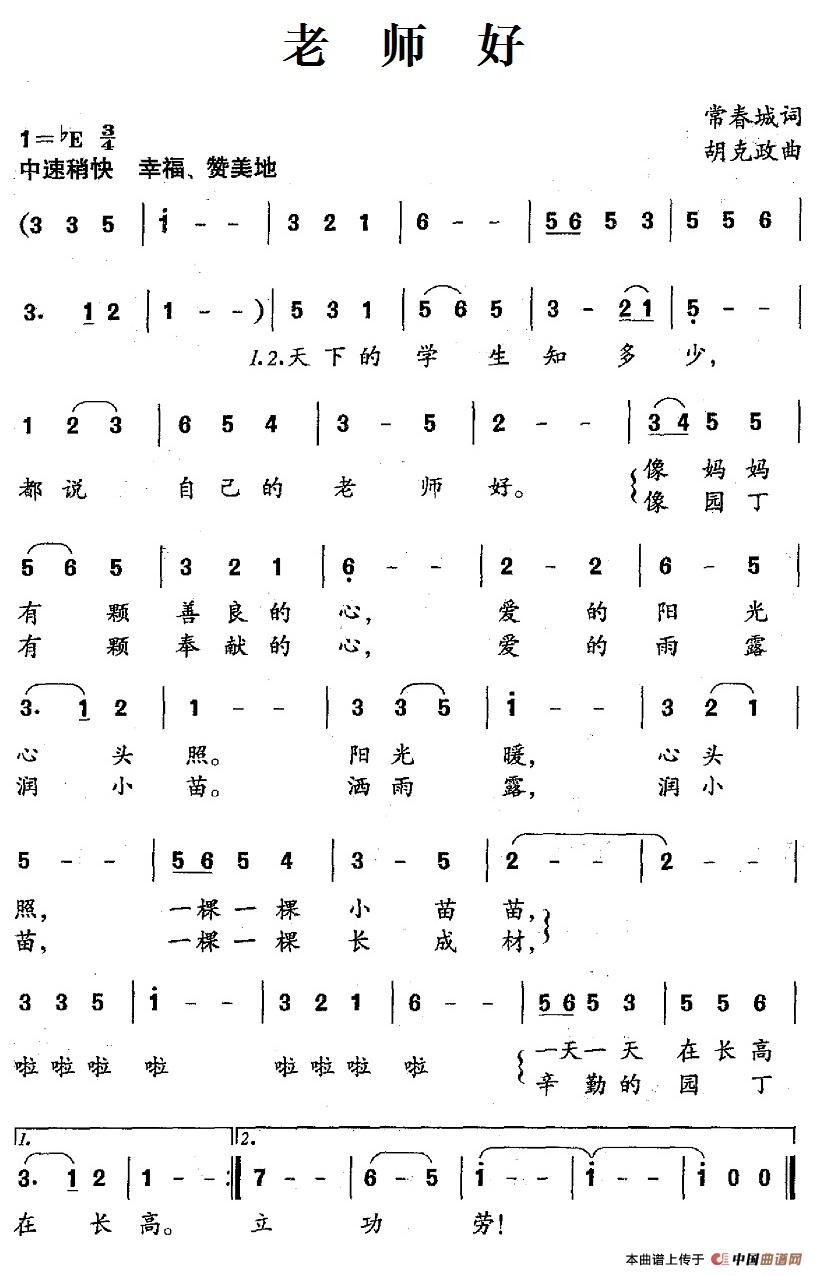 老 师 好
1=♭E 3/4
常春城词
中速稍快 幸福、赞美地
胡克政曲
(3 3 5 | i - - | 3 2 1 | 6 - - | 56 5 3 | 5 5 6 |
3. 1 2 | 1 - - ) | 5 3 1 | 5 6 5 | 3 - 21 | 5 - - |
1.2.天下的 学 生 知 多 少,
1 2 3 | 6 5 4 | 3 - 5 | 2 - - | 34 5 5 |
都说 自己的 老 师 好。 像 妈妈
像 园丁
5 6 5 | 3 2 1 | 6 - - | 2 - 2 | 6 - 5 |
有 颗 善良的 心, 爱 的 阳 光
有 颗 奉献的 心, 爱 的 雨 露
3. 1 2 | 1 - - | 3 3 5 | i - - | 3 2 1 |
心 头 照。 阳光 暖, 心头
润 小 苗。 洒雨 露, 润小
5 - - | 56 5 4 | 3 - 5 | 2 - - | 2 - - |
照, 一棵一棵 小 苗 苗,
苗, 一棵一棵 长 成 材,
3 3 5 | i - - | 3 2 1 | 6 - - | 56 5 3 | 5 5 6 |
啦啦啦 啦 啦啦啦 啦 一天一天 在长高
辛勤的 园 丁
1. 2.
3. 1 2 | 1 - - :| 7 - - | 6 - 5 | i - - | i - - | i 0 0 ‖
在 长 高。 立 功 劳!
本曲谱上传于 中国曲谱网